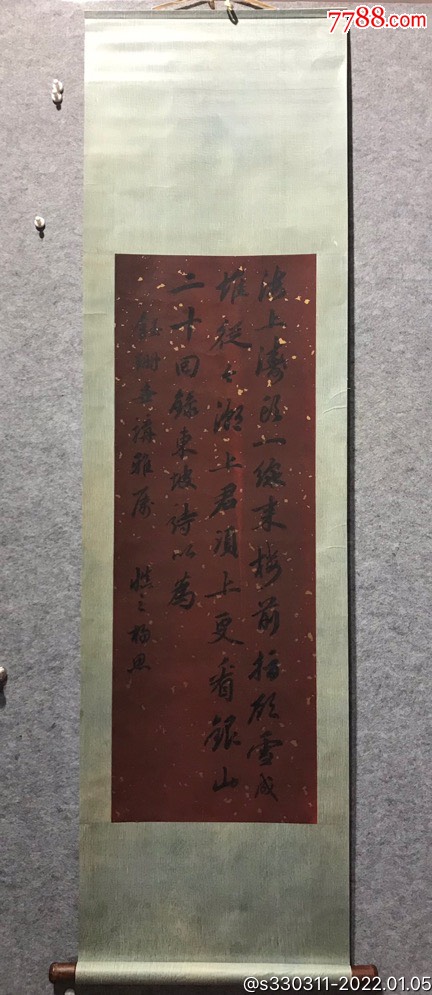 7788.com
海上濤頭一線来樓前指顧雪成
堆從今潮上君須上更看銀山
二十回錄東坡詩以為
雅屬
慎之楊思
@s330311-2022.01.05